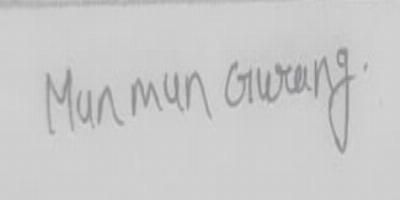 Munmun Gurung.